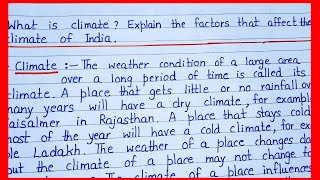 What is climate? Explain the factors that affect the
climate of India.
Climate :- The weather condition of a large area
over a long period of time is called its
climate. A place that gets little or no rainfall ov
many years will have a dry climate, for exampl
Jaisalmer in Rajasthan. A place that stays cold
most of the year will have a cold climate, for ex
ple Ladakh. The weather of a place changes da
but the climate of a place may not change fo
The climate of a place influences